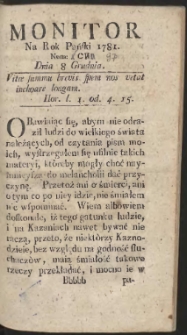 MONITOR
Na Rok Pański 1781.
Numer
Dnia 8 Grudnia.
Vitæ summa brevis spem nos vetat
inchoare longam.
Hor. l. 1. od. 4. 15.
OBawiając się, abym nie odra-
ził ludzi do wielkiego świata
należących, od czytania pism mo-
ich, wystrzegałem się usilnie takich
materyi, któreby mogły choć nay-
mnieyszą do melancholii dać przy-
czynę. Przetoż ani o śmierci, ani
o tym co po niey idzie, nie śmiałem
y wspomnieć. Wiem albowiem
doskonale, iż tego gatunku ludzie,
i na Kazaniach nawet bywać nie
raczą, przeto, że niektórzy Kazno-
dzieie, bez wzglę du na godność słu-
chaczów, maią śmiałość takowe
rzeczy przekładać, i mocno ie w
Bbbbb pa-